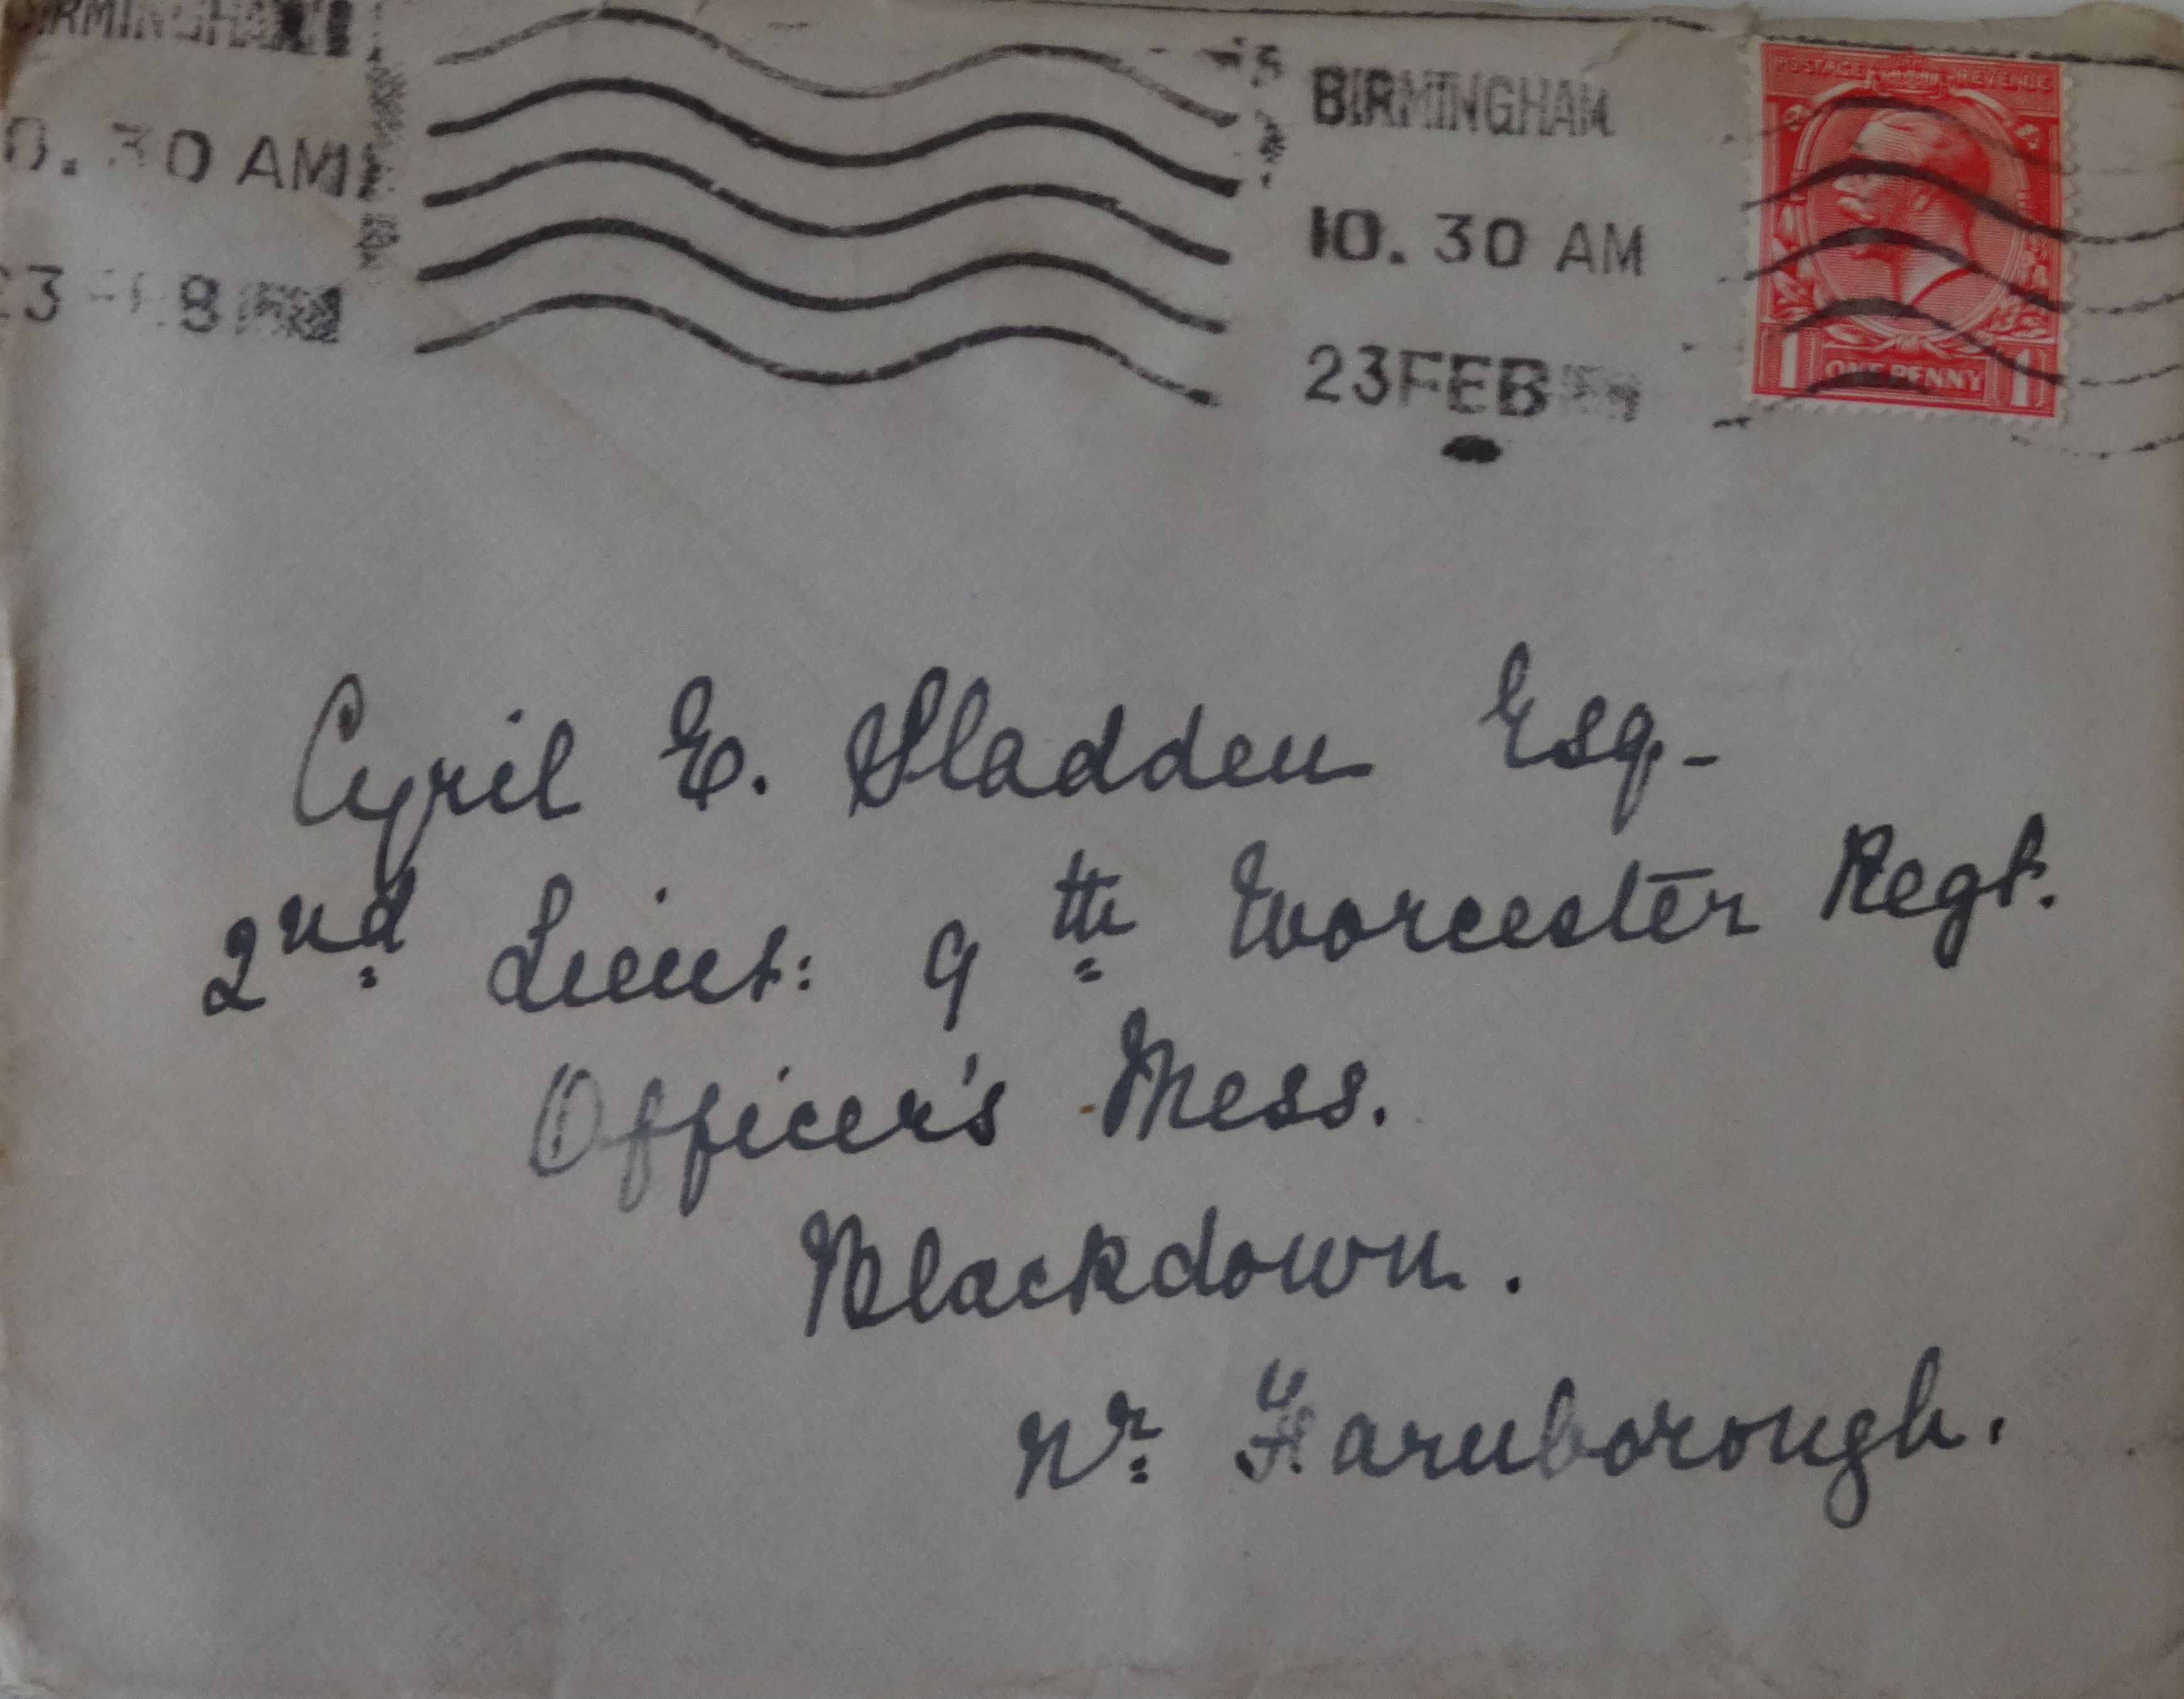 BIRMINGHAM
30 AM
BIRMINGHAM
10. 30 AM
23 FEB
POSTAGE REVENUE
1 ONE PENNY 1
Cyril E. Sladden Esq-
2nd Lieut: 9th Worcester Regt.
Officer's Mess.
Blackdown.
Nr Farnborough.